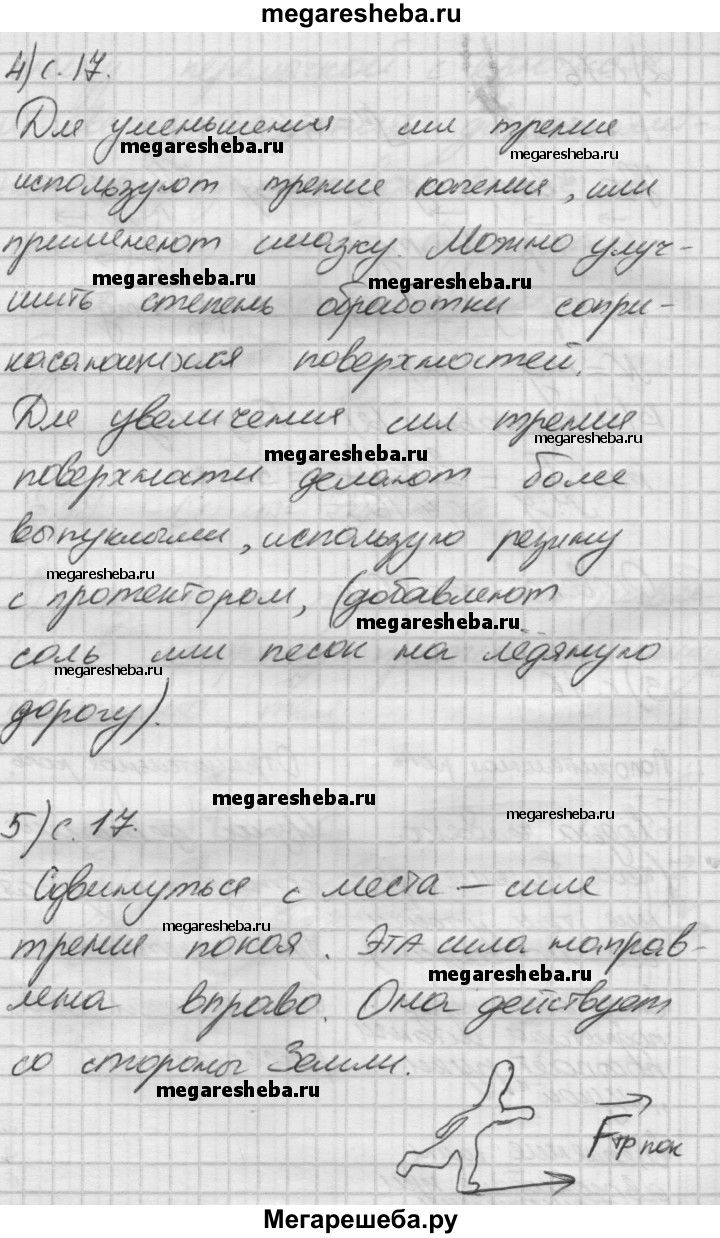 megaresheba.ru
4) с. 17.
Для уменьшения сил трения
megaresheba.ru
megaresheba.ru
используют трение качения, или
применяют смазку. Можно улуч-
megaresheba.ru
megaresheba.ru
шить степень обработки сопри-
касающихся поверхностей.
Для увеличения сил трения
megaresheba.ru
megaresheba.ru
поверхности делают более
выпуклыми, использую резину
megaresheba.ru
с протектором, (добавляют
megaresheba.ru
соль или песок на ледяную
megaresheba.ru
дорогу).
megaresheba.ru
megaresheba.ru
5) с. 17.
Сдвинуться с места – сила
megaresheba.ru
трения покоя. Эта сила направ-
megaresheba.ru
лена вправо. Она действует
со стороны Земли.
megaresheba.ru
Fтр пок
Мегарешеба.ру